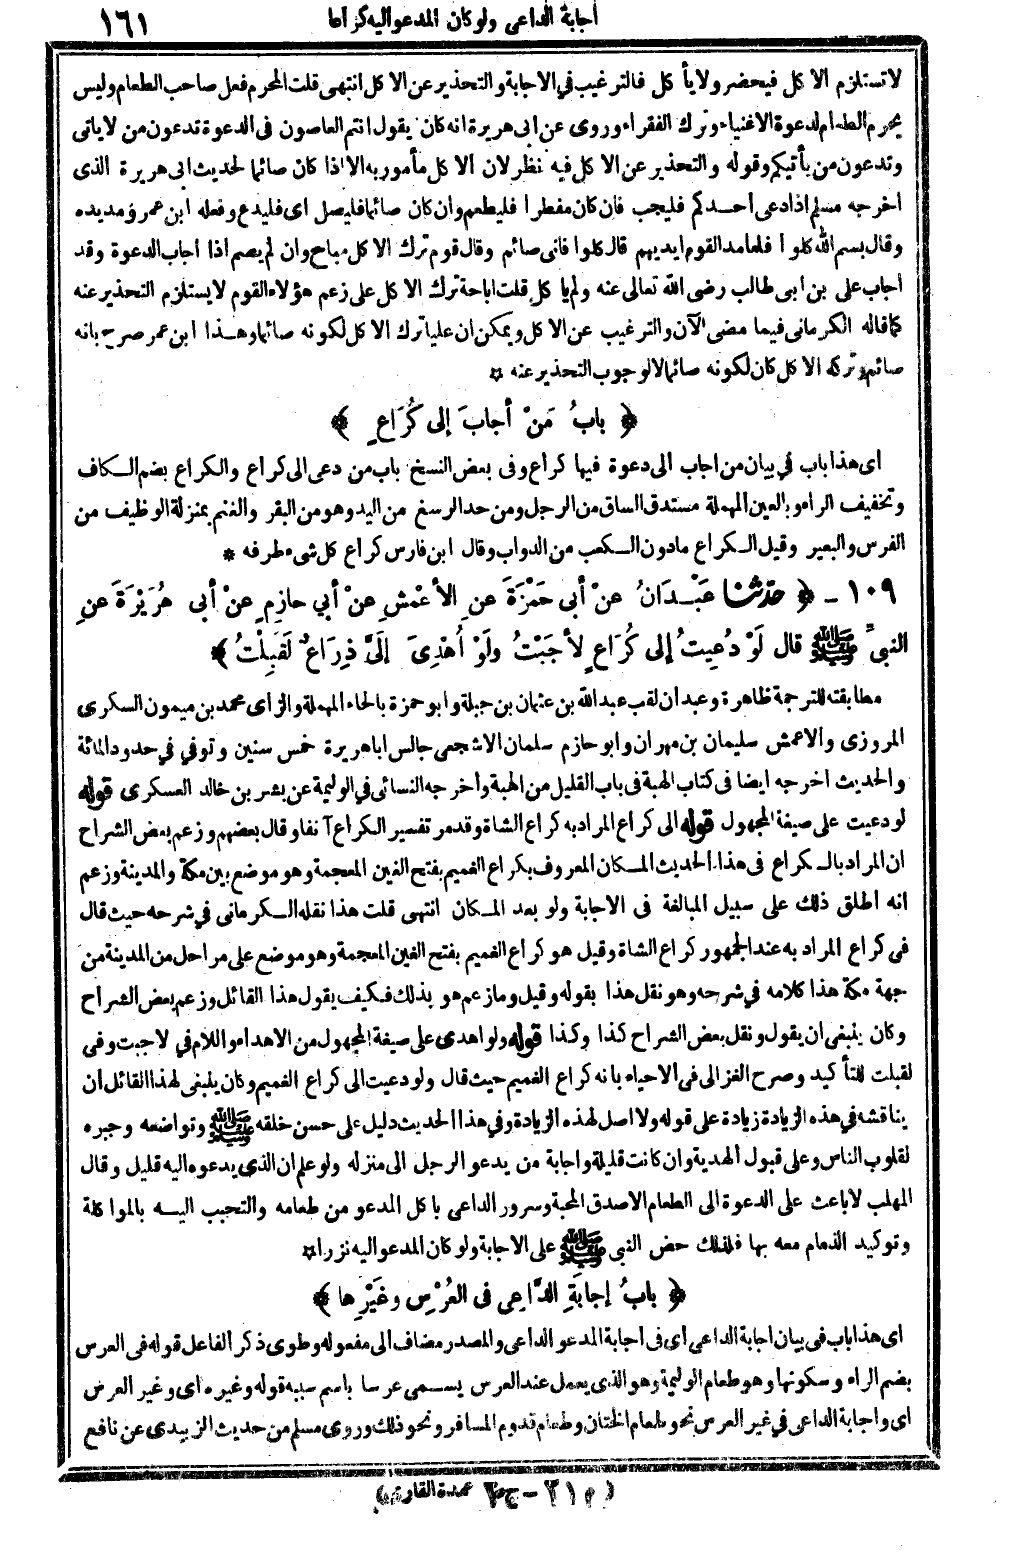 أجابة الداعى ولو كان المدعو اليه كراعا
١٦١
لا تستلزم الاكل فيحضر ولا يأكل فالترغيب في الاجابة والتحذير عن الاكل انتهى قلت المحرم فعل صاحب الطعام وليس
يحرم الطعام لدعوة الاغنياء وترك الفقراء وروى عن ابى هريرة انه كان يقول انتم العاصون فى الدعوة تدعون من لا يأتى
وتدعون من يأتيكم وقوله والتحذير عن الاكل فيه نظر لان الاكل مأمور به الا اذا كان صائما لحديث ابى هريرة الذى
اخرجه مسلم اذا دعى أحدكم فليجب فان كان مفطرا فليطعم وان كان صائما فليصل اى فليدع وفعله ابن عمر ومد يده
وقال بسم الله كلوا فلما مد القوم ايديهم قال كلوا فانى صائم وقال قوم ترك الاكل مباح وان لم يصم اذا اجاب الدعوة وقد
أجاب على بن ابى طالب رضى الله تعالى عنه ولم يأكل قلت اباحة ترك الاكل على زعم هؤلاء القوم لا يستلزم التحذير عنه
كما قاله الكرمانى فيما مضى الآن والترغيب عن الاكل ويمكن ان عليا ترك الاكل لكونه صائما وهذا ابن عمر صرح بانه
صائم وتركه الاكل كان لكونه صائما لا لوجوب التحذير عنه ✩
﴿ بابُ مَنْ أجابَ إلى كُرَاعٍ ﴾
اى هذا باب في بيان من اجاب الى دعوة فيها كراع وفى بعض النسخ باب من دعى الى كراع والكراع بضم الكاف
وتخفيف الراء وبالعين المهملة مستدق الساق من الرجل ومن حد الرسغ من اليد وهو من البقر والغنم بمنزلة الوظيف من
الفرس والبعير وقيل الكراع مادون الكعب من الدواب وقال ابن فارس كراع كل شىء طرفه *
١٠٩ - ﴿ حدّثنا عَبْدَانُ عنْ أبى حَمْزَةَ عنِ الأعْمَشِ عنْ أبي حازِمٍ عنْ أبى هُرَيْرَةَ عنِ
النبىِّ ﷺ قال لَوْ دُعِيتُ إلى كُرَاعٍ لأجَبْتُ ولَوْ أُهْدِىَ إلَىَّ ذِرَاعٌ لَقَبِلْتُ ﴾
مطابقته للترجمة ظاهرة وعبدان لقب عبدالله بن عثمان بن جبلة وابو حمزة بالحاء المهملة والزاى محمد بن ميمون السكرى
المروزى والاعمش سليمان بن مهران وابو حازم سلمان الاشجعى جالس اباهريرة خمس سنين وتوفي في حدود المائة
والحديث اخرجه ايضا فى كتاب الهبة فى باب القليل من الهبة وأخرجه النسائى في الوليمة عن بشر بن خالد العسكرى قوله
لو دعيت على صيغة المجهول قوله الى كراع المراد به كراع الشاة وقد مر تفسير الكراع آنفا وقال بعضهم وزعم بعض الشراح
ان المراد بالكراع فى هذا الحديث المكان المعروف بكراع الغميم بفتح الغين المعجمة وهو موضع بين مكة والمدينة وزعم
انه اطلق ذلك على سبيل المبالغة فى الاجابة ولو بعد المكان انتهى قلت هذا نقله الكرمانى في شرحه حيث قال
فى كراع المراد به عند الجمهور كراع الشاة وقيل هو كراع الغميم بفتح الغين المعجمة وهو موضع على مراحل من المدينة من
جهة مكة هذا كلامه في شرحه وهو نقل هذا بقوله وقيل وما زعم هو بذلك فكيف يقول هذا القائل وزعم بعض الشراح
وكان ينبغى ان يقول ونقل بعض الشراح كذا وكذا قوله ولو اهدى على صيغة المجهول من الاهداء واللام في لاجبت وفى
لقبلت للتأكيد وصرح الغزالى فى الاحياء بانه كراع الغميم حيث قال ولو دعيت الى كراع الغميم وكان ينبغى لهذا القائل أن
يناقشه في هذه الزيادة زيادة على قوله ولا اصل لهذه الزيادة وفي هذا الحديث دليل على حسن خلقه ﷺ وتواضعه وجبره
لقلوب الناس وعلى قبول الهدية وان كانت قليلة واجابة من يدعو الرجل الى منزله ولو علم ان الذى يدعوه اليه قليل وقال
المهلب لا باعث على الدعوة الى الطعام الا صدق المحبة وسرور الداعى باكل المدعو من طعامه والتحبب اليه بالمواكلة
وتوكيد الذمام معه بها فلذلك حض النبى ﷺ على الاجابة ولو كان المدعو اليه نزرا ✩
﴿ بابُ إجابَةِ الدَّاعِى فى العُرْسِ وغَيْرِها ﴾
اى هذا باب فى بيان اجابة الداعى اى فى اجابة المدعو الداعى والمصدر مضاف الى مفعوله وطوى ذكر الفاعل قوله فى العرس
بضم الراء وسكونها وهو طعام الوليمة وهو الذى يعمل عند العرس يسمى عرسا باسم سببه قوله وغيره اى وغير العرس
اى واجابة الداعى في غير العرس نحو طعام الختان وطعام قدوم المسافر ونحو ذلك وروى مسلم من حديث الزبيدى عن نافع
(م ٢١ - ج ٢٠ عمدة القارى)